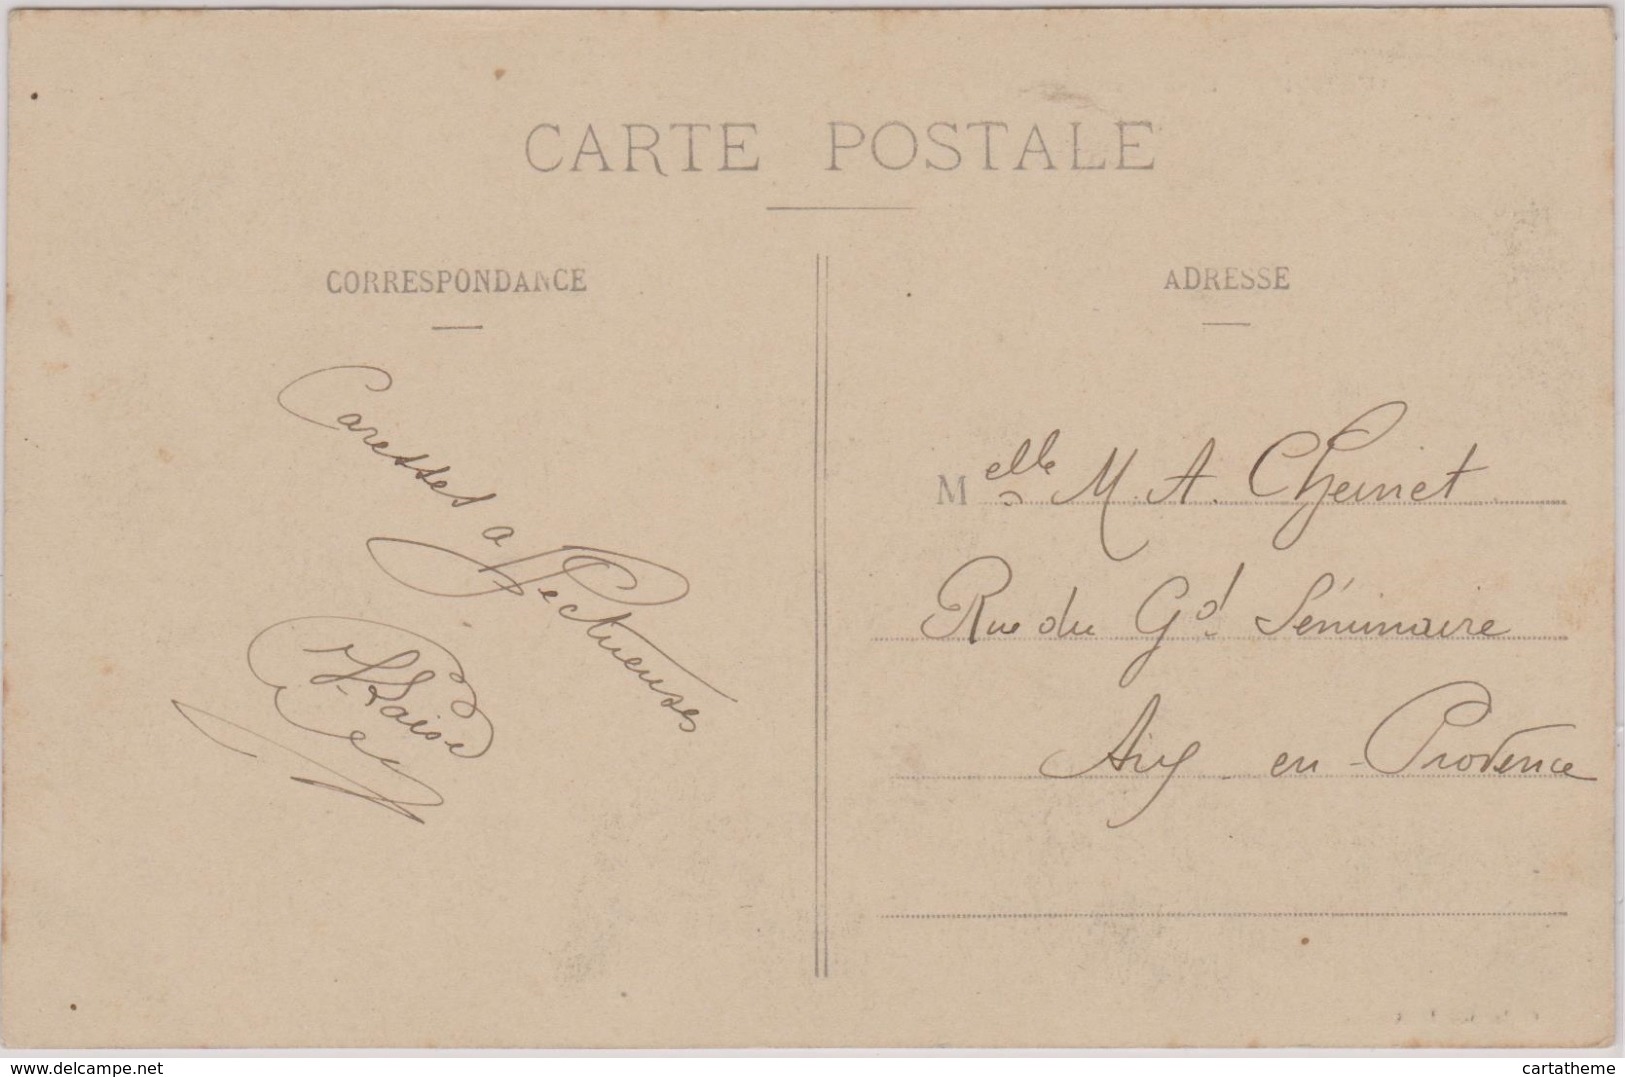 CARTE POSTALE
CORRESPONDANCE
Caresses affectueuses
ADRESSE
Melle M. A. Cheinet
Rue du Gd. Séminaire
Aix - en - Provence
www.delcampe.net
cartatheme